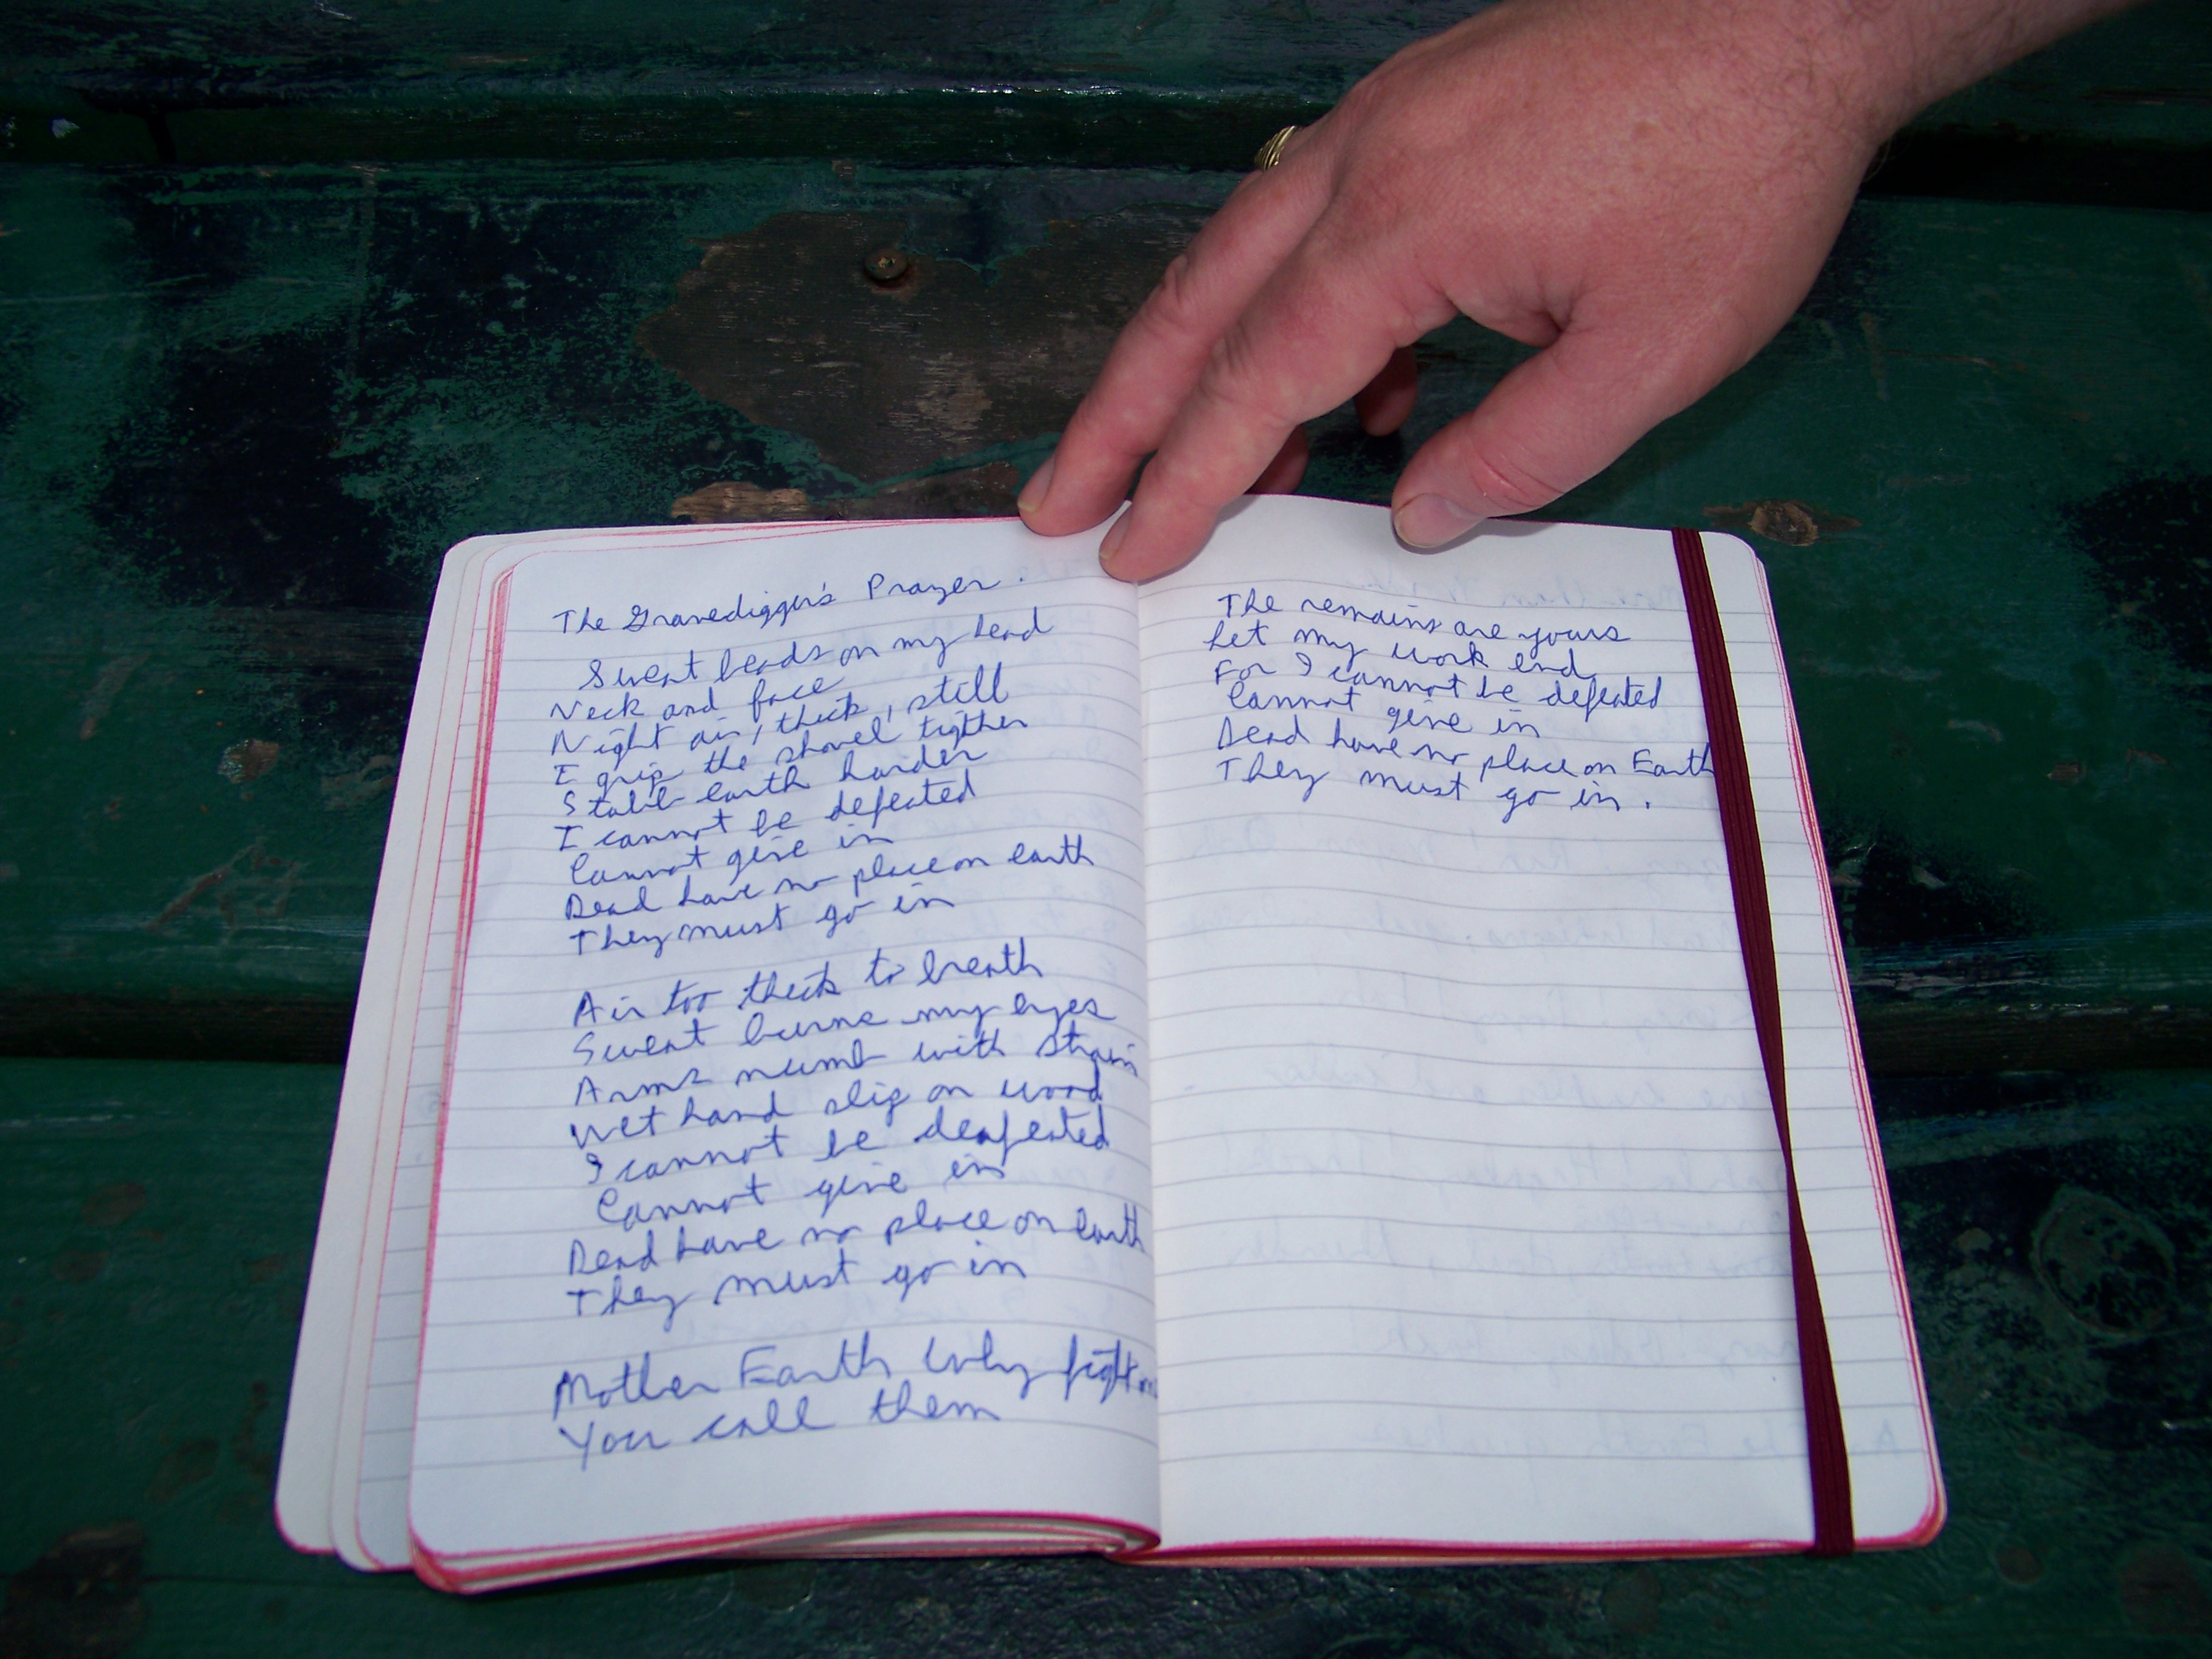 The Gravedigger's Prayer.
Sweat beads on my head
Neck and face
Night air, thick, still
I grip the shovel tigther
Stabb earth harder
I cannot be defeated
Cannot give in
Dead have no place on earth
They must go in
Air too thick to breath
Sweat burns my eyes
Arms numb with strain
Wet hand slip on wood
I cannot be deafeated
Cannot give in
Dead have no place on earth
They must go in
Mother Earth Why fight
You call them
The remains are yours
Let my work end
For I cannot be defeated
Cannot give in
Dead have no place on Earth
They must go in.